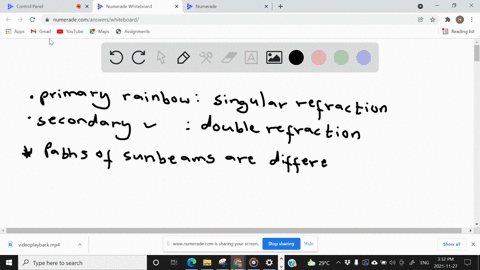 Control Panel
Numerade Whiteboard
Numerade
numerade.com/answers/whiteboard/
Apps
Gmail
YouTube
Maps
Assignments
Reading list
• primary rainbow: singular refraction
• secondary ✓ : double refraction
* Paths of sunbeams are differe
videoplayback.mp4
www.numerade.com is sharing your screen.
Stop sharing
Hide
Show all
Type here to search
29°C
ENG
3:32 PM
2021-11-27